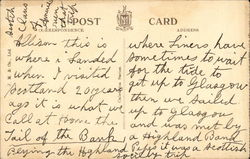 Scotish
Clans
POST CARD
CORRESPONDENCE
ADDRESS
this is
where I landed
when I visited
Scotland 20 years
ago it is what we
call at home the
Tail of the Bank
where liners have
sometimes to wait
for the tide to
get up to Glasgow
then we sailed
up to Glasgow
and was met by
a Highland Band
the Highland Pipes it was a Scottish
trip